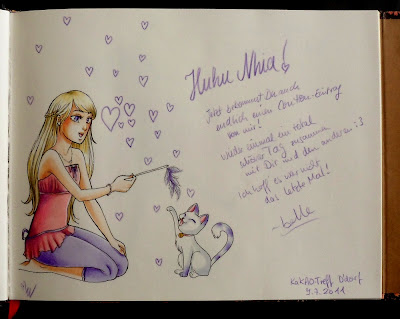 Huhu Mhia!
Jetzt bekommst Du auch
endlich einen Conhon-Eintrag
von mir!
wieder einmal ein total
schöner Tag zusammen
mit Dir und den anderen :3
Ich hoff' es war nicht
das letzte Mal!
- belle
KaKAO-Treff D'dorf
9.7.2011